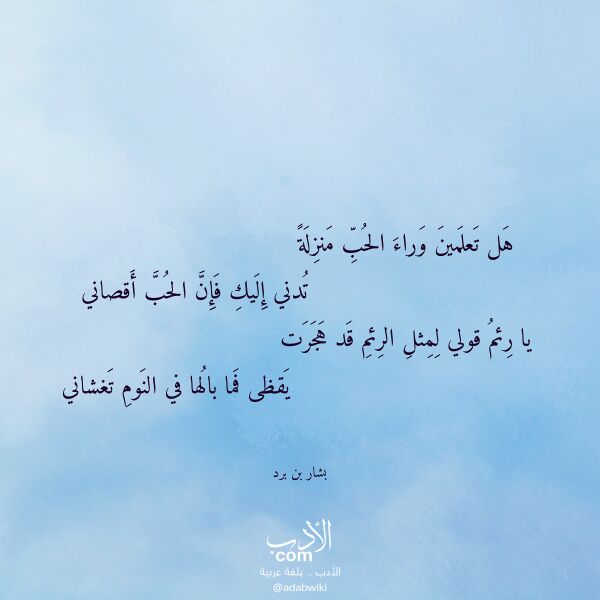 هَل تَعلَمينَ وَراءَ الحُبِّ مَنزِلَةً
تُدني إِلَيكِ فَإِنَّ الحُبَّ أَقصاني
يا رِئمُ قولي لِمِثلِ الرِئمِ قَد هَجَرَت
يَقظى فَما بالُها في النَومِ تَغشاني
بشار بن برد
الأدب
com
الأدب .. بلغة عربية
@adabwiki